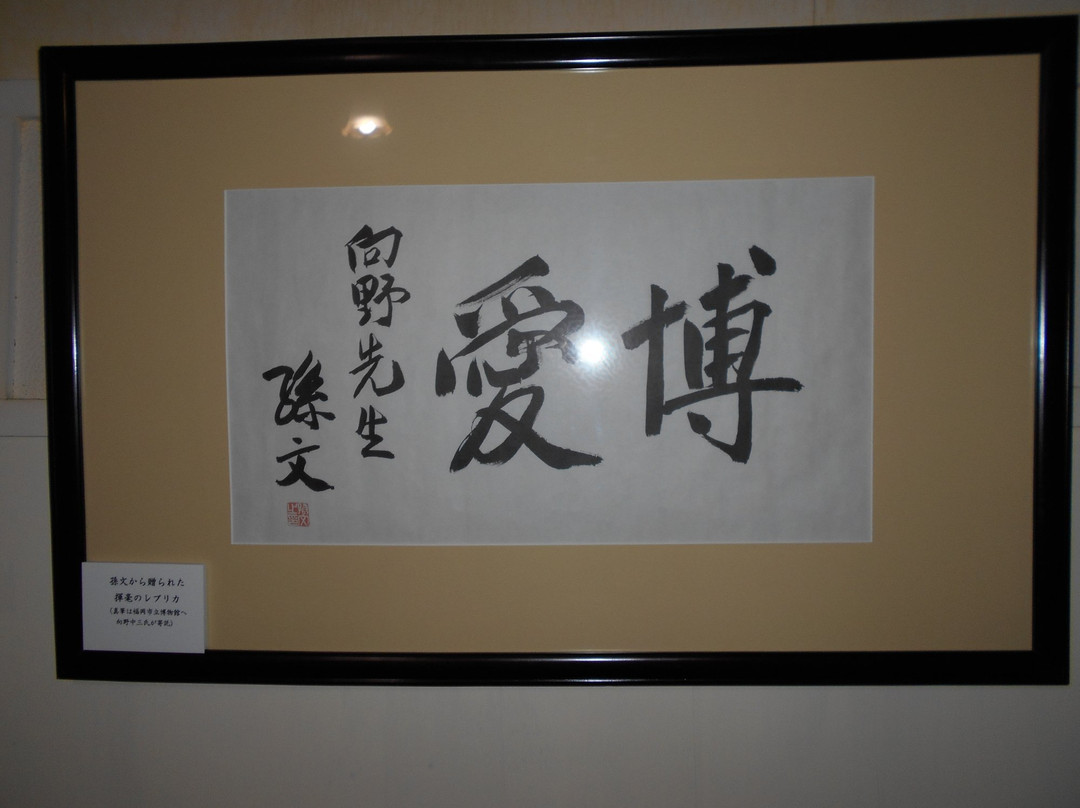 博愛
向野先生
孫文
孫文から贈られた
揮毫のレプリカ
(真筆は福岡市立博物館へ
向野中三氏が寄託)